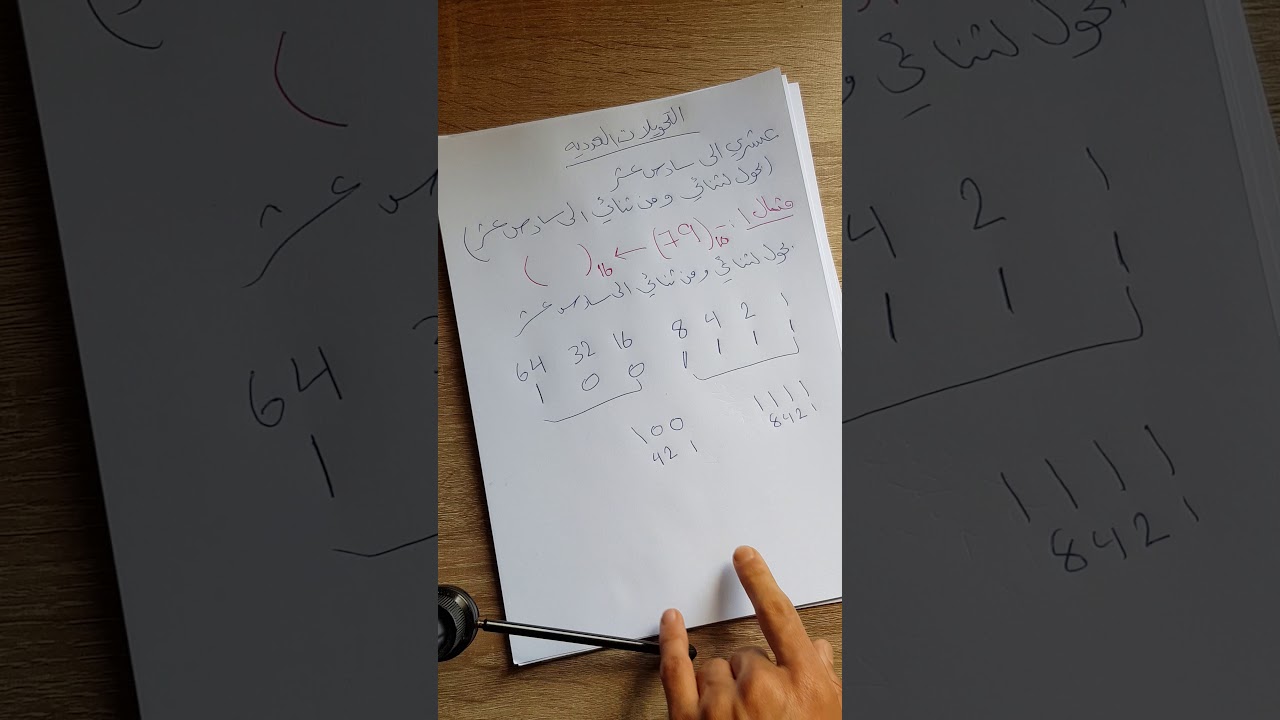 التحويلات العددية
عشري الى سادس عشر
(نحول لثنائي و من ثنائي الى سادس عشر)
مثال: (79)10 ← ( )16
نحول لثنائي و من ثنائي الى سادس عشر
64 32 16 8 4 2 1
1 0 0 1 1 1 1
100 1111
421 8421